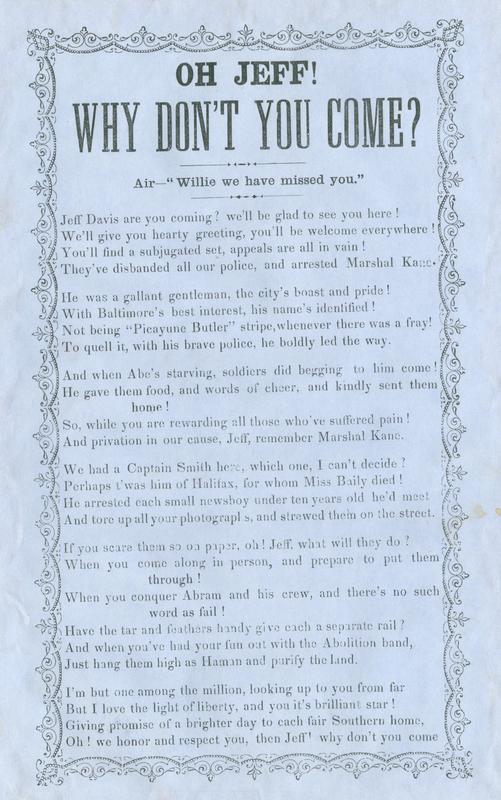 OH JEFF!
WHY DON'T YOU COME?
Air—"Willie we have missed you."
Jeff Davis are you coming? we'll be glad to see you here!
We'll give you hearty greeting, you'll be welcome everywhere!
You'll find a subjugated set, appeals are all in vain!
They've disbanded all our police, and arrested Marshal Kane.
He was a gallant gentleman, the city's boast and pride!
With Baltimore's best interest, his name's identified!
Not being "Picayune Butler" stripe,whenever there was a fray!
To quell it, with his brave police, he boldly led the way.
And when Abe's starving, soldiers did begging to him come!
He gave them food, and words of cheer, and kindly sent them
home!
So, while you are rewarding all those who've suffered pain!
And privation in our cause, Jeff, remember Marshal Kane.
We had a Captain Smith here, which one, I can't decide?
Perhaps t'was him of Halifax, for whom Miss Baily died!
He arrested each small newsboy under ten years old he'd meet
And tore up all your photograpl s, and strewed them on the street.
If you scare them so on paper, oh! Jeff, what will they do?
When you come along in person, and prepare to put them
through!
When you conquer Abram and his crew, and there's no such
word as fail!
Have the tar and feathers handy give each a separate rail?
And when you've had your fun out with the Abolition band,
Just hang them high as Haman and purify the land.
I'm but one among the million, looking up to you from far
But I love the light of liberty, and you it's brilliant star!
Giving promise of a brighter day to each fair Southern home,
Oh! we honor and respect you, then Jeff! why don't you come